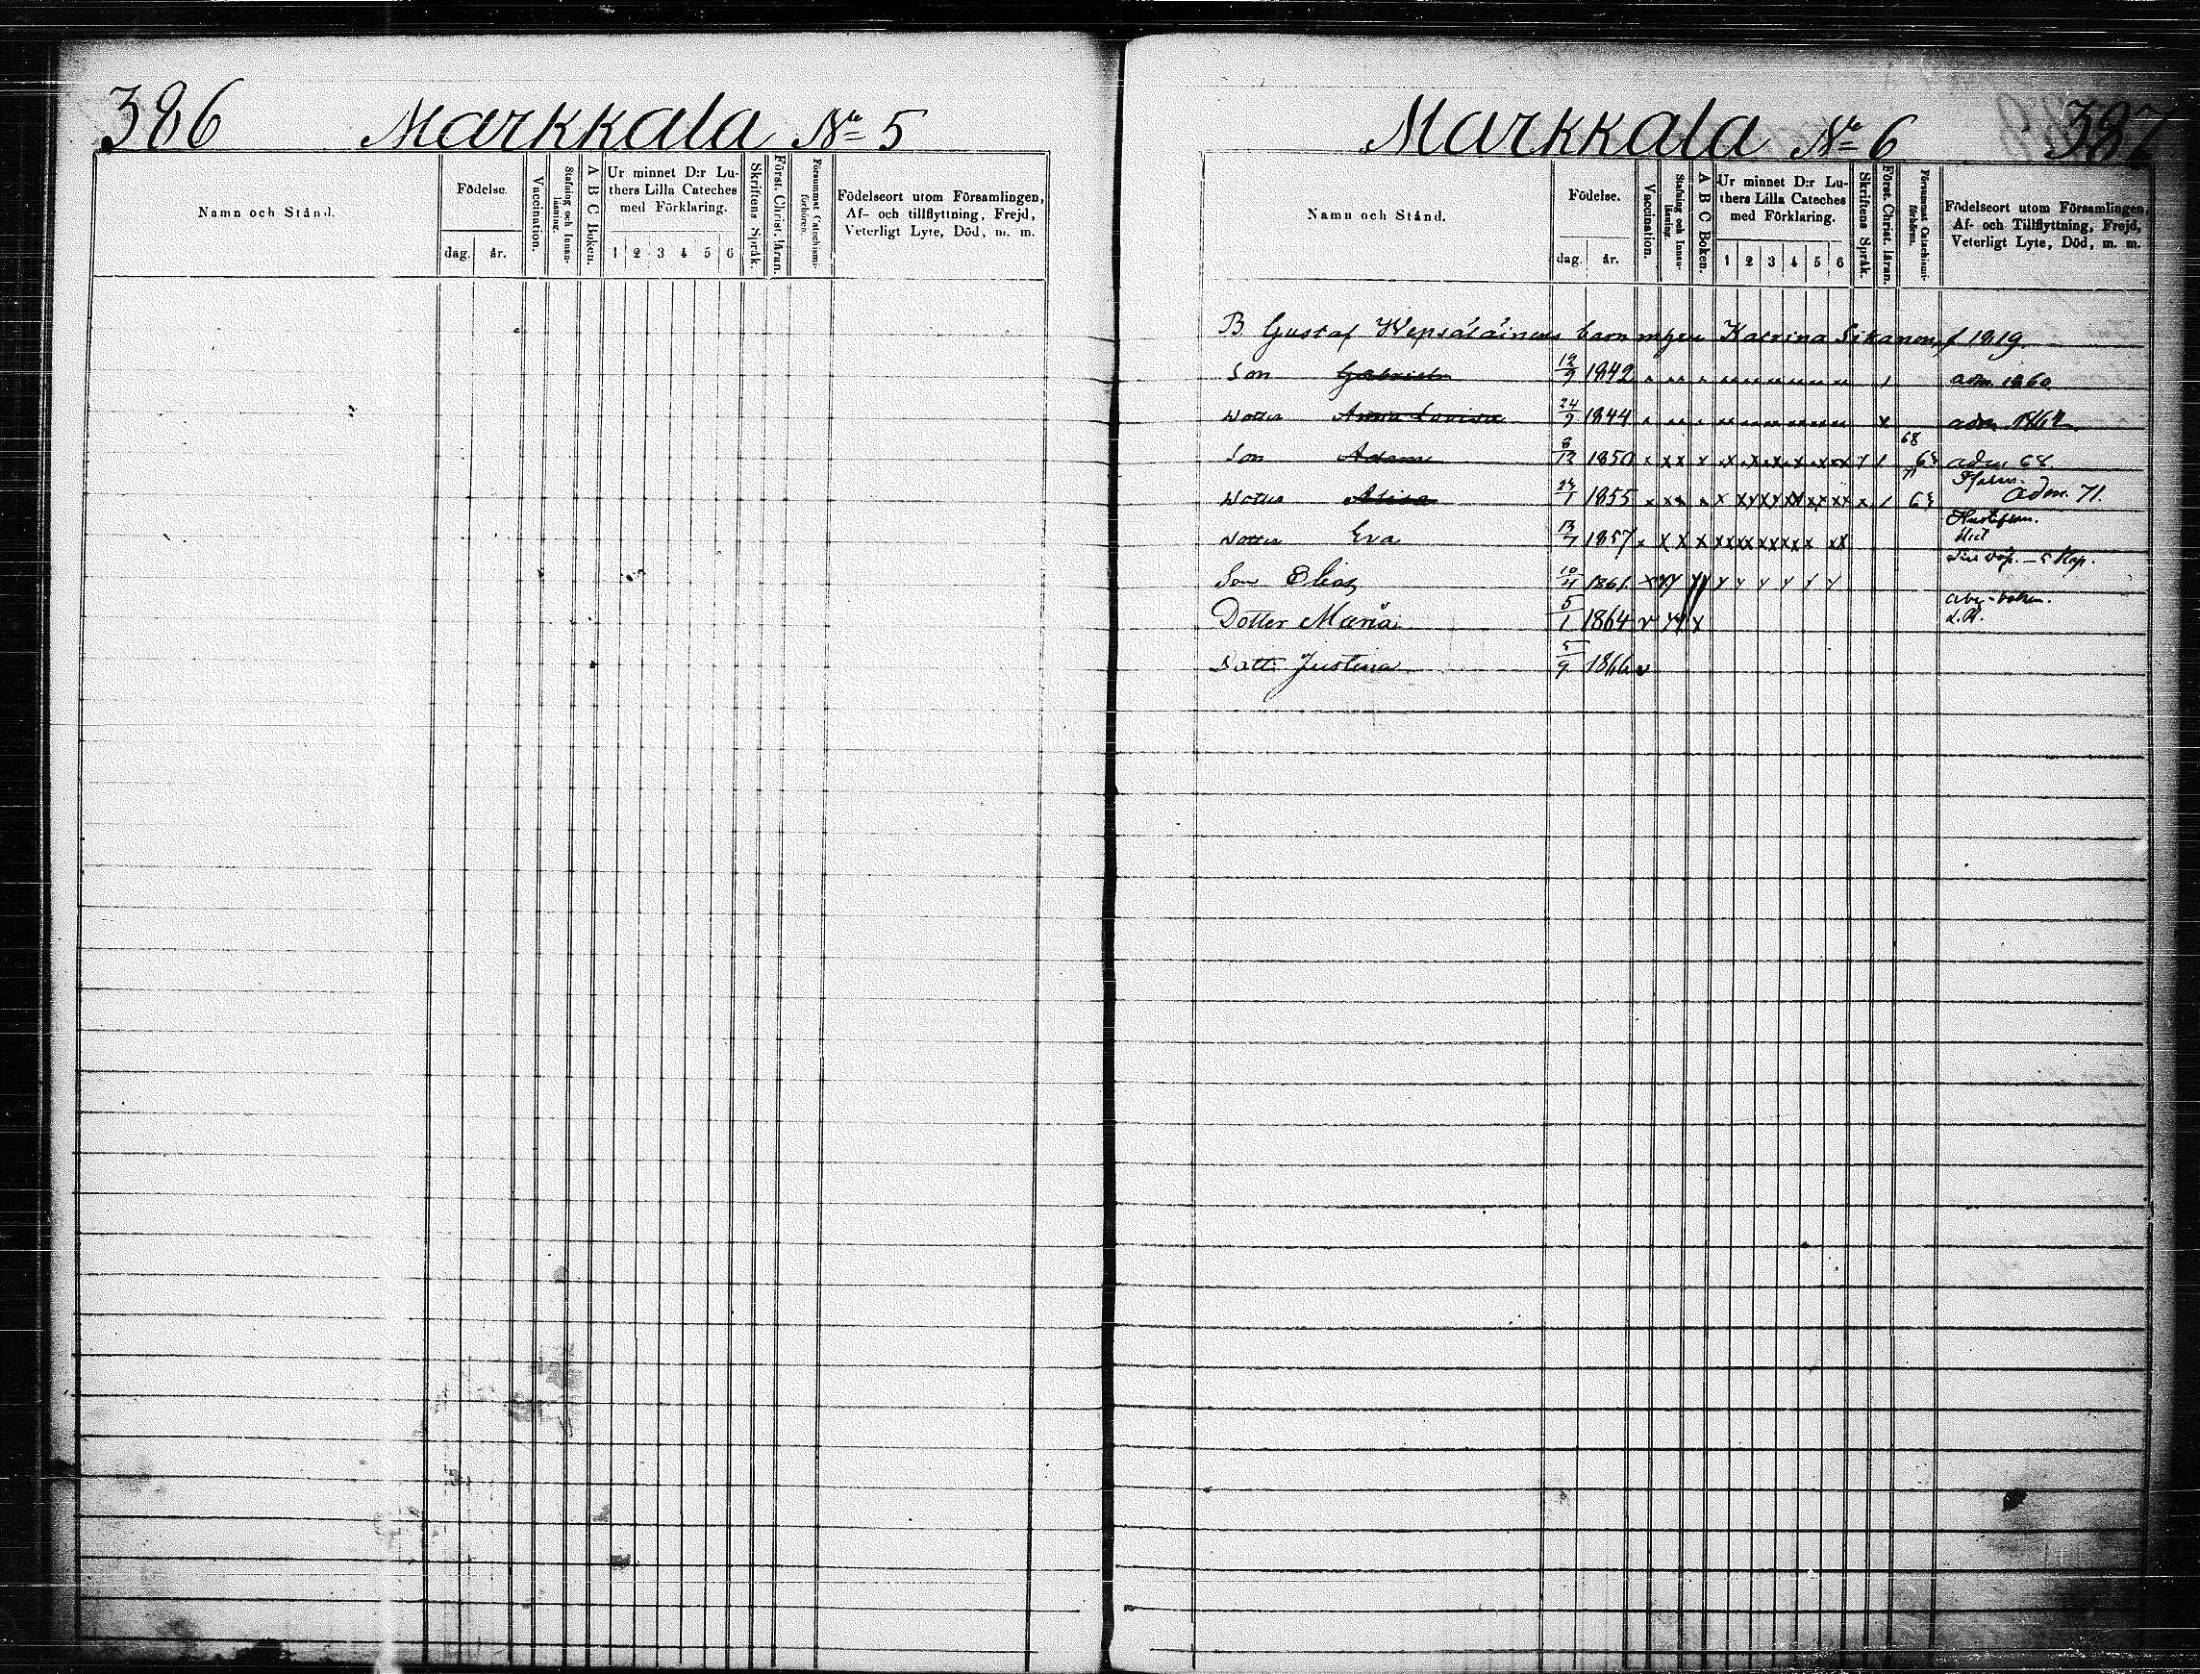 386 Markkala No 5
Namn och Stånd.
Födelse.
dag. år.
Vaccination.
Stafning och Innanläsning.
A B C Boken.
Ur minnet D:r Luthers Lilla Cateches med Förklaring.
1 2 3 4 5 6
Skriftens Språk.
Först. Christ. läran.
Försummat Catechismiförhören.
Födelseort utom Församlingen,
Af- och tillflyttning, Frejd,
Veterligt Lyte, Död, m. m.
Markkala No 6 387
Namn och Stånd.
Födelse.
dag. år.
Vaccination.
Stafning och Innanläsning.
A B C Boken.
Ur minnet D:r Luthers Lilla Cateches med Förklaring.
1 2 3 4 5 6
Skriftens Språk.
Först. Christ. läran.
Försummat Catechismiförhören.
Födelseort utom Församlingen,
Af- och Tillflyttning, Frejd,
Veterligt Lyte, Död, m. m.
B. Gustaf Wepsäläinens barn Katrina Sikanen f 1819.
Son Gabriel 12/9 1842 adm. 1860
Dotter Anna Lovisa 24/9 1844 adm. 1862
Son Adam 8/12 1850 68 68 adm. 68.
Dotter 1855 71 68 adm. 71.
Dotter Eva 13/7 1857
Son Elias 10/11 1861
Dotter Maria 5/1 1864 abc-boken. L.K.
Dott. Justina 5/9 1866